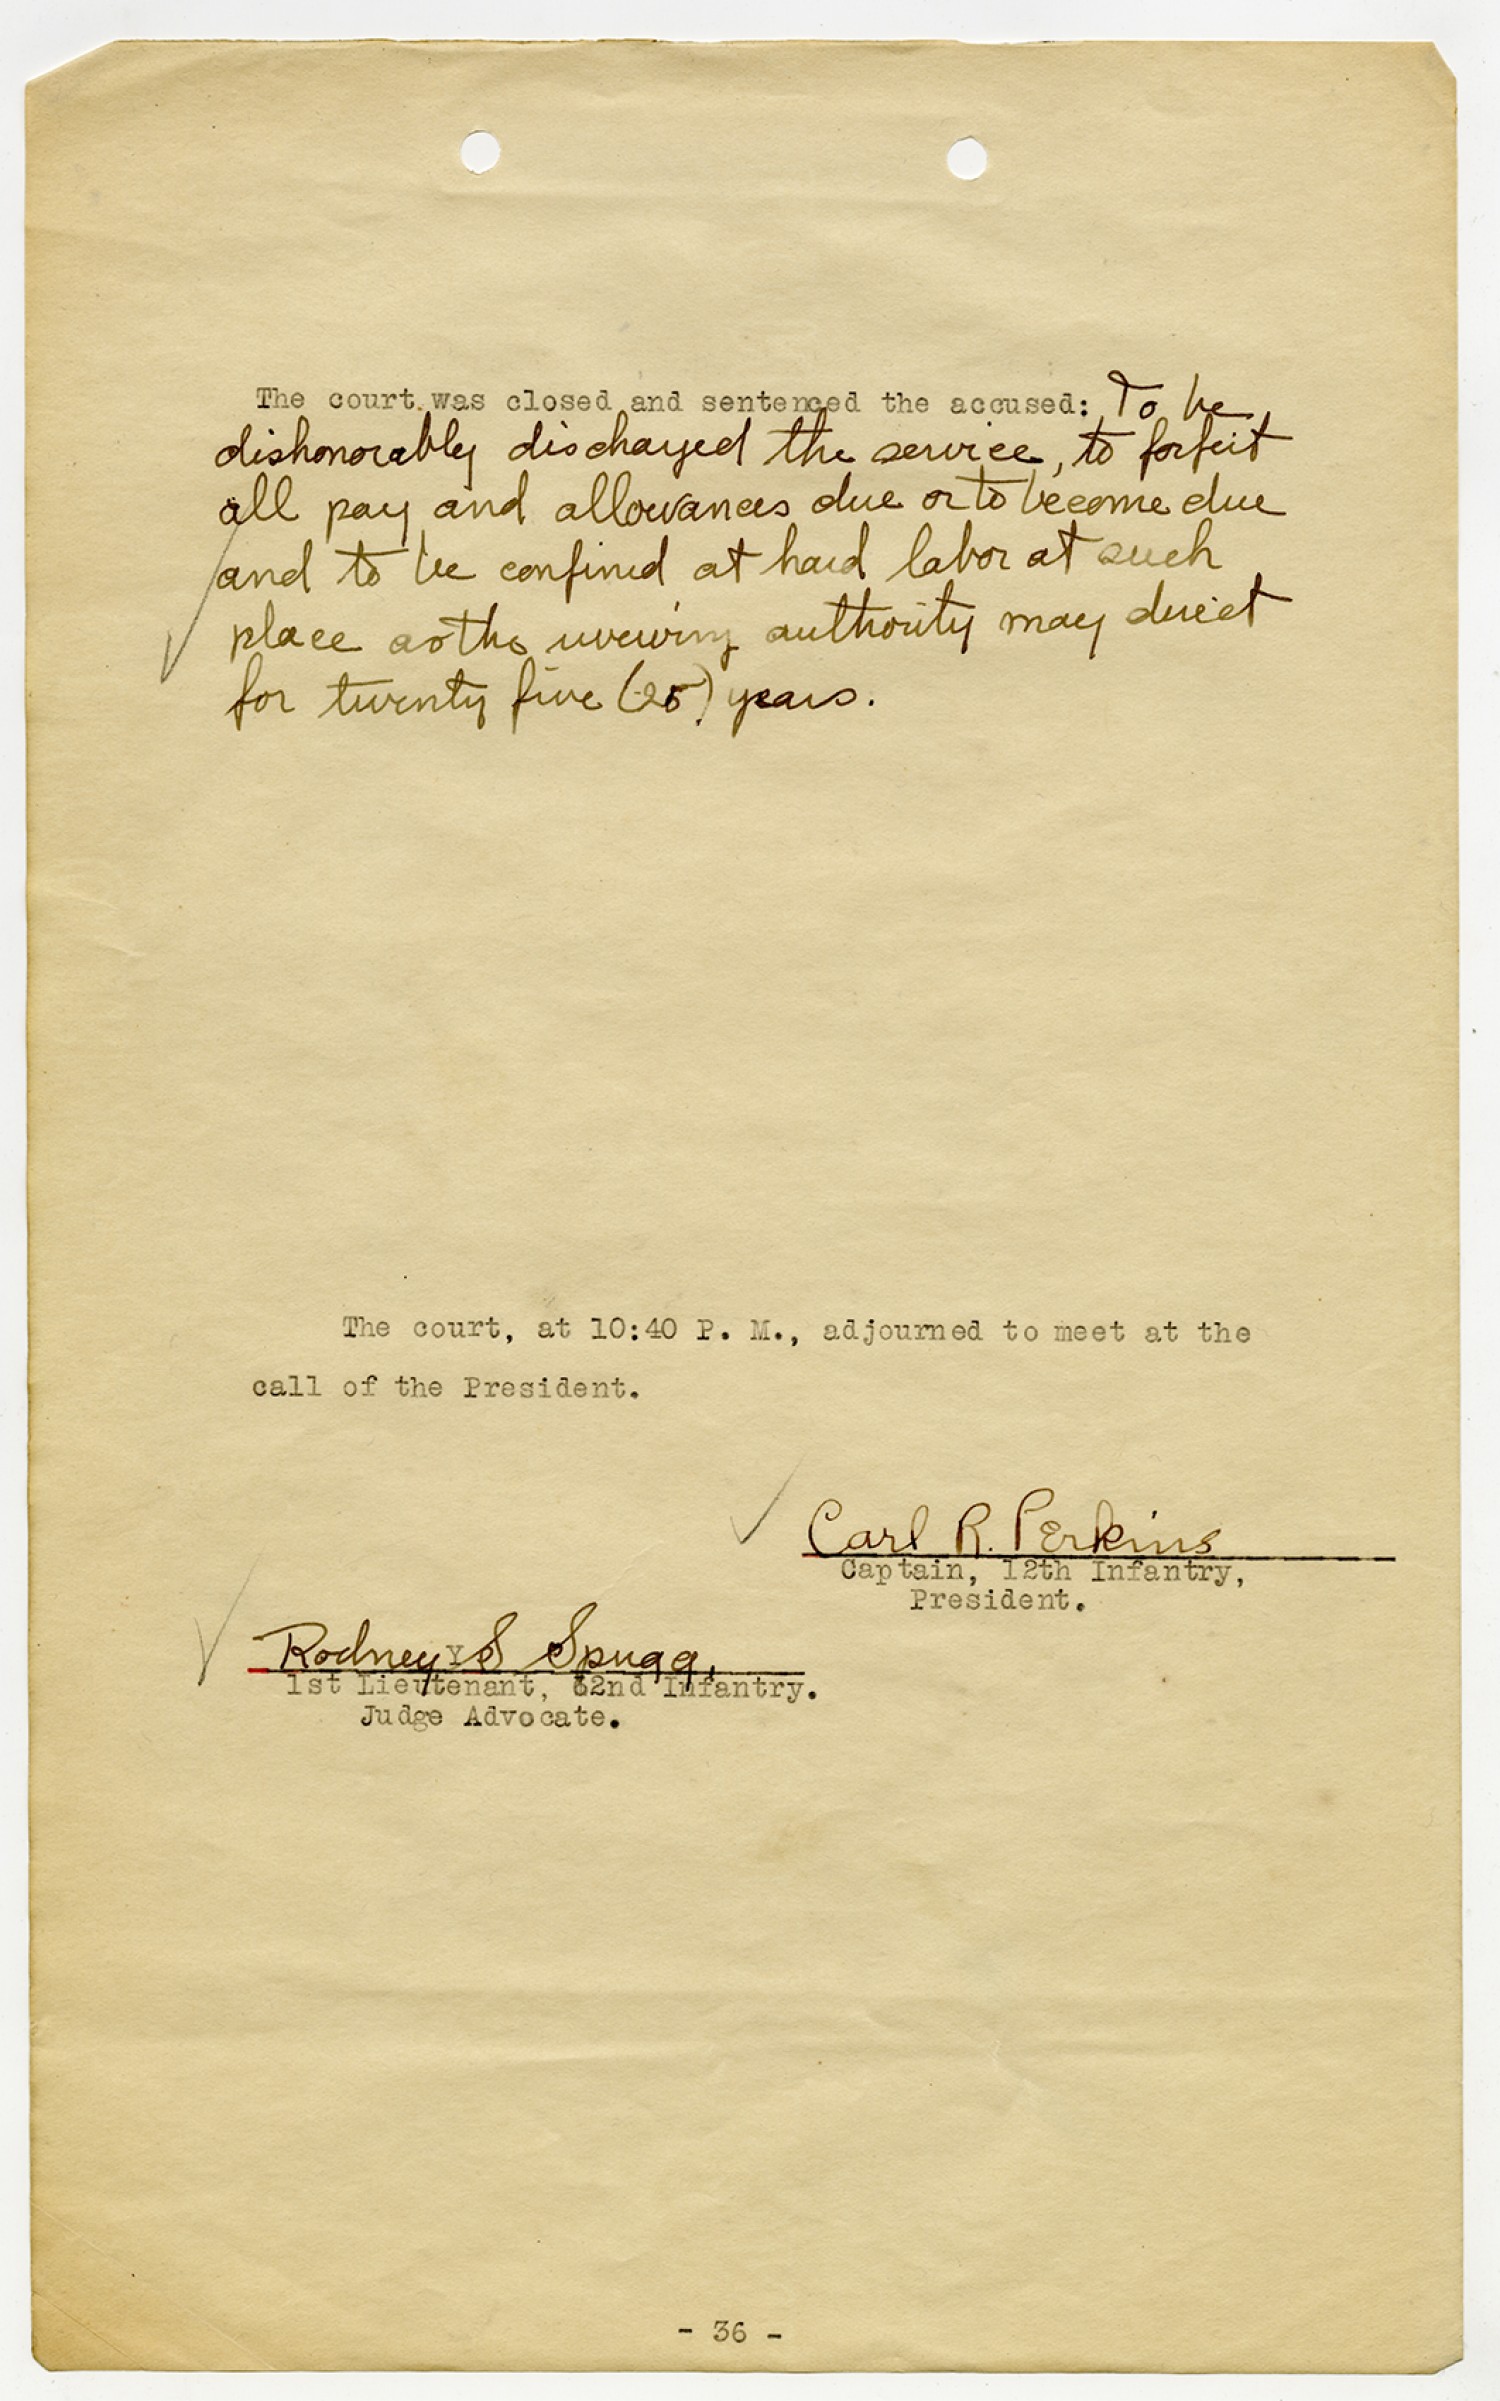 The court was closed and sentenced the accused: To be
dishonorably discharged the service, to forfeit
all pay and allowances due or to become due
and to be confined at hard labor at such
place as the reviewing authority may direct
for twenty five (25) years.
The court, at 10:40 P. M., adjourned to meet at the
call of the President.
Carl R. Perkins
Captain, 12th Infantry,
President.
Rodney S Spugg,
1st Lieutenant, 62nd Infantry.
Judge Advocate.
- 36 -